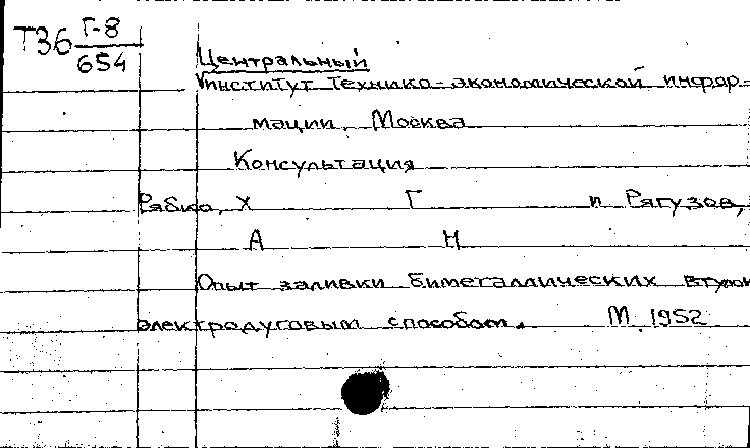 Т36 Г-8
654
Центральный
Институт Технико-экономической инфор-
мации, Москва
Консультация
Рябко, Х Г и Рягузов,
А Н
Опыт заливки биметаллических втулок
электродуговым способом. М. 1952